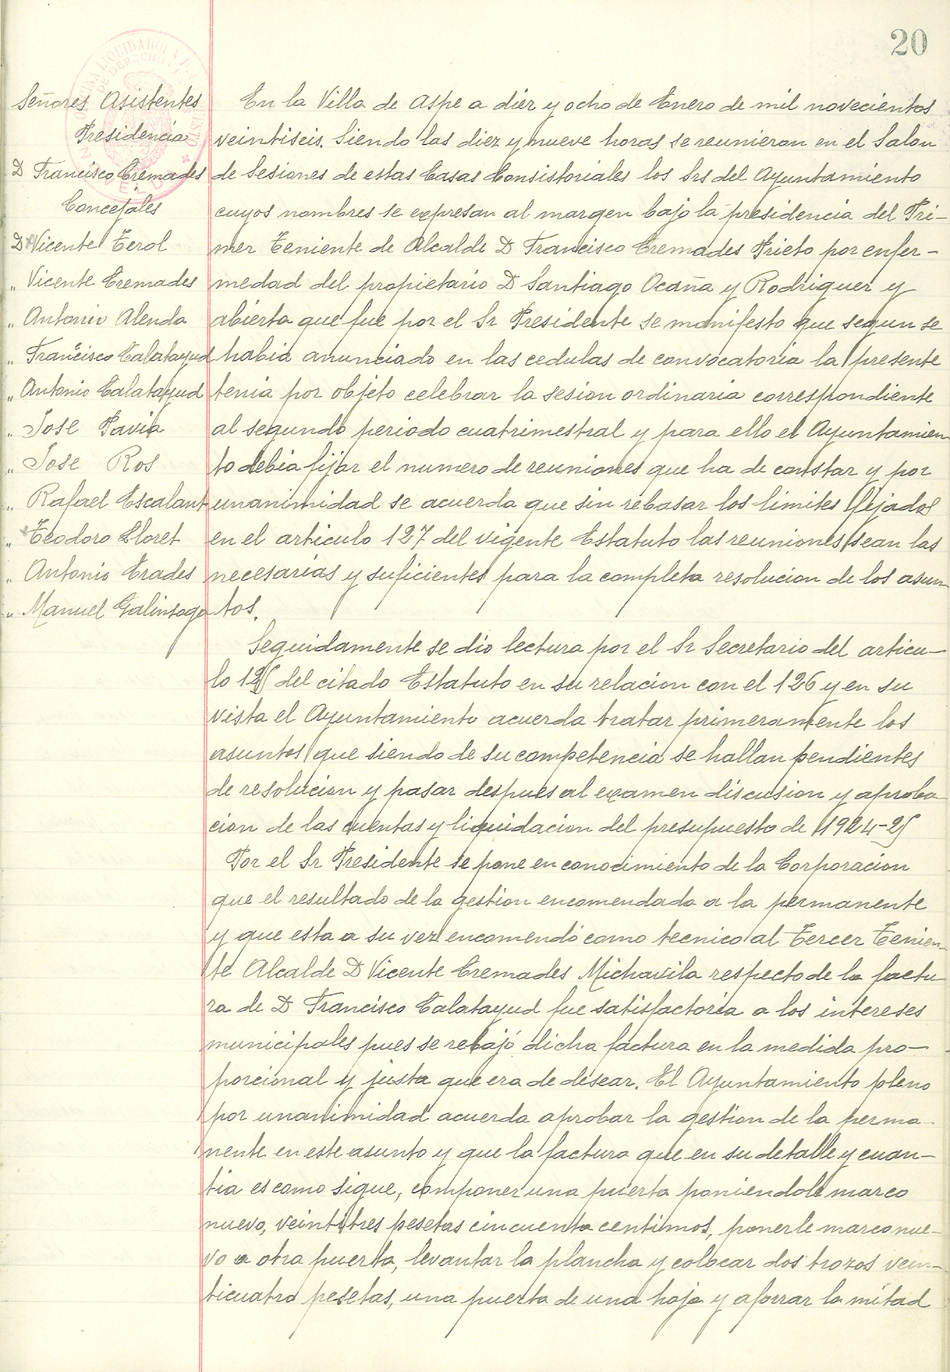 20
Señores Asistentes
Presidencia
D Francisco Cremades
Concejales
D Vicente Cerol
" Vicente Cremades
" Antonio Alenda
" Francisco Calatayud
" Antonio Calatayud
" Jose Pavia
" Jose Ros
" Rafael Escalant
" Teodoro Lloret
" Antonio Erades
" Manuel Galinsoga
En la Villa de Aspe a diez y ocho de Enero de mil novecientos
veintiseis. Siendo las diez y nueve horas se reunieron en el Salon
de Sesiones de estas Casas Consistoriales los Srs del Ayuntamiento
cuyos nombres se expresan al margen bajo la presidencia del Pri-
mer Teniente de Alcalde D Francisco Cremades Prieto por enfer-
medad del propietario D Santiago Ocaña y Rodriguez y
abierta que fue por el Sr Presidente se manifesto que segun se
habia anunciado en las cedulas de convocatoria la presente
tenia por objeto celebrar la sesion ordinaria correspondiente
al segundo periodo cuatrimestral y para ello el Ayuntamien
to debia fijar el numero de reuniones que ha de constar y por
unanimidad se acuerda que sin rebasar los limites fijados
en el articulo 127 del vigente Estatuto las reuniones sean las
necesarias y suficientes para la completa resolucion de los asun
tos.
Seguidamente se dio lectura por el Sr Secretario del articu-
lo 125 del citado Estatuto en su relacion con el 126 y en su
vista el Ayuntamiento acuerda tratar primeramente los
asuntos que siendo de su competencia se hallan pendientes
de resolucion y pasar despues al examen discusion y aproba
cion de las cuentas y liquidacion del presupuesto de 1924-25
Por el Sr Presidente se pone en conocimiento de la Corporacion
que el resultado de la gestion encomendada a la permanente
y que esta a su vez encomendó como tecnico al Tercer Tenien-
te Alcalde D Vicente Cremades Michavila respecto de la factu
ra de D Francisco Calatayud fue satisfactoria a los intereses
municipales pues se rebajó dicha factura en la medida pro-
porcional y justa que era de desear. El Ayuntamiento pleno
por unanimidad acuerda aprobar la gestion de la perma-
nente en este asunto y que la factura que en su detalle y cuan-
tia es como sigue, componer una puerta poniendole marco
nuevo, veintitres pesetas cincuenta centimos, ponerle marco nue-
vo a otra puerta, levantar la plancha y colocar dos trozos vein-
ticuatro pesetas, una puerta de una hoja y aforrar la mitad